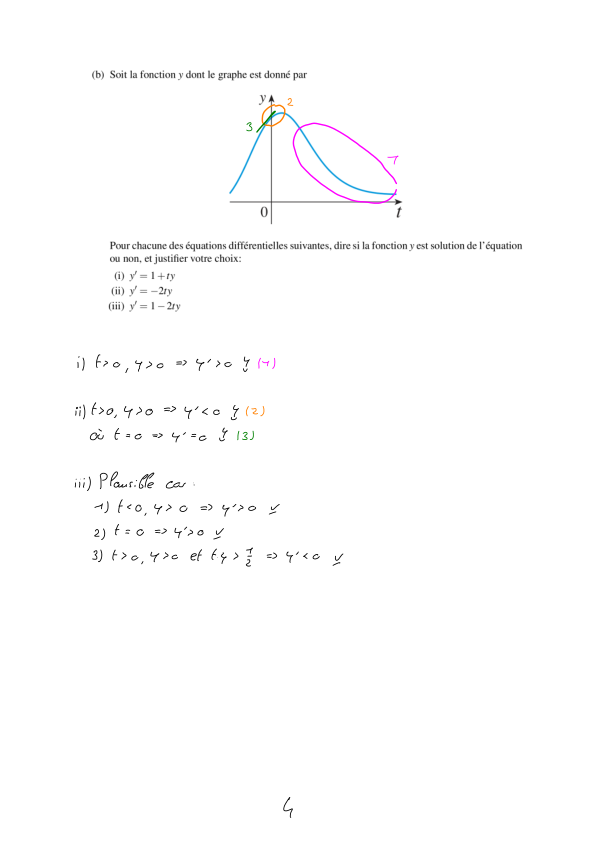 (b) Soit la fonction y dont le graphe est donné par
y
2
3
1
0
t
Pour chacune des équations différentielles suivantes, dire si la fonction y est solution de l'équation
ou non, et justifier votre choix:
(i) y′ = 1 + ty
(ii) y′ = −2ty
(iii) y′ = 1 − 2ty
i) t>0, y>0 => y'>0 ↯ (1)
ii) t>0, y>0 => y'<0 ↯ (2)
où t=0 => y'=0 ↯ (3)
iii) Plausible car
1) t<0, y>0 => y'>0 ✓
2) t=0 => y'>0 ✓
3) t>0, y>0 et ty > 1/2 => y'<0 ✓
4